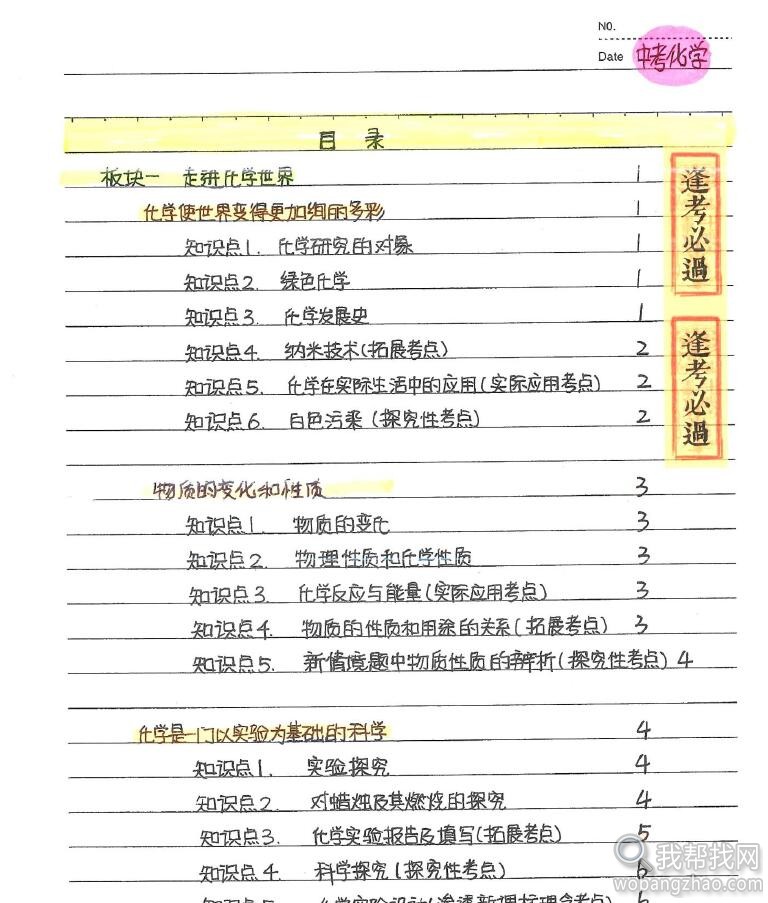 NO.
Date 中考化学
目录
板块一 走进化学世界 1
化学使世界变得更加绚丽多彩 1
知识点1. 化学研究的对象 1
知识点2. 绿色化学 1
知识点3. 化学发展史 1
知识点4. 纳米技术(拓展考点) 2
知识点5. 化学在实际生活中的应用(实际应用考点) 2
知识点6. 白色污染(探究性考点) 2
逢考必過
逢考必過
物质的变化和性质 3
知识点1. 物质的变化 3
知识点2. 物理性质和化学性质 3
知识点3. 化学反应与能量(实际应用考点) 3
知识点4. 物质的性质和用途的关系(拓展考点) 3
知识点5. 新情境题中物质性质的辨析(探究性考点) 4
化学是一门以实验为基础的科学 4
知识点1. 实验探究 4
知识点2. 对蜡烛及其燃烧的探究 4
知识点3. 化学实验报告及填写(拓展考点) 5
知识点4. 科学探究(探究性考点) 6
我帮找网
wobangzhao.com